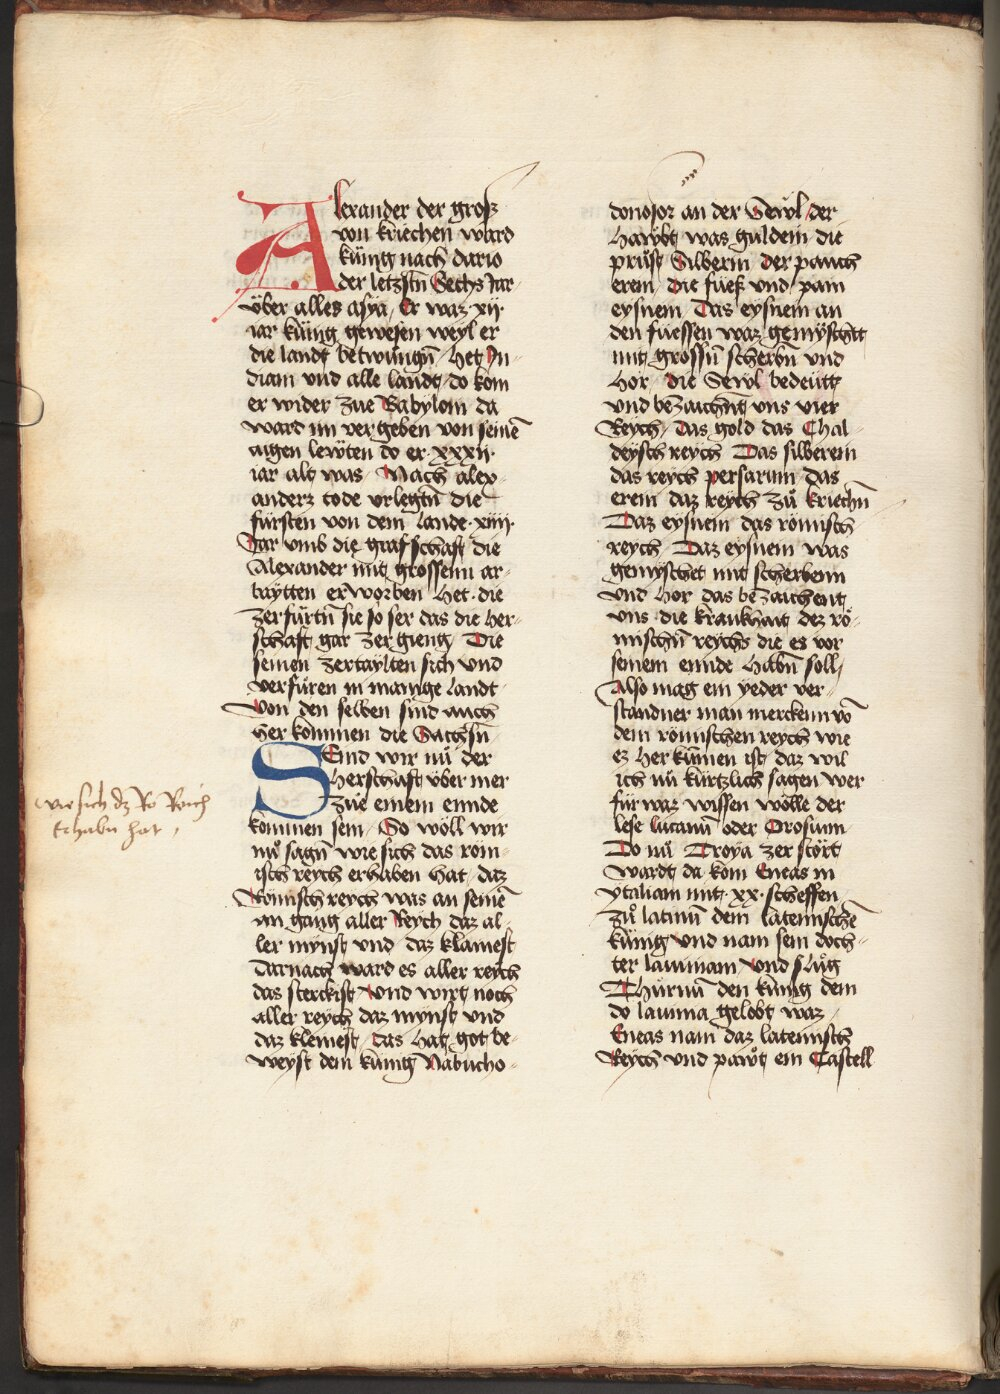 Alexander der groß
von kriechen ward
künig nach dario
der letzstn Sechs Jar
über alles asya / Er waz xij
iar künig gewesen weyl er
die landt betwungn / Het Jn-
diam vnd alle landt / do kom
er wider zue Babylom da
ward im vergeben von seinē
aigen lewten do er · xxxij ·
iar alt was / Nach alex-
anderz tode vrlegtn die
fürsten von dem Lande · xiiij ·
Jar vmb die grafschaft die
Alexander mit grossenn ar-
baytten erworben Het · die
zerfürtn sie so ser das die Her-
schaft gar zergieng / Die
seinen zertaylten sich vnd
verfuren in manige Landt
Von den selben sind auch
Her kommen die Sachsn
SEind wir nů der
Herschaft über mer
zue einem ennde
kommen sein / So wöll wir
nů sagn wie sich das röm-
isch reych erhaben Hat / daz
Römisch reych was an seinē
an gang aller Reych daz al-
ler mynst vnd daz klainest
Darnach ward es aller reych
das sterckist / Vnd wirt noch
aller reych daz mynst vnd
daz klenest / Das Hat got be-
weyst dem künig Nabucho-
donosor an der Sewl / der
Hawbt was guldein die
prüst Silberin / Der pauch
erein / Die füeß vnd pain
eysnein / Das eysnein an
den fuessen waz gemyschtt
mit grossn scherbn vnd
Hor / die Sewl bedeutt
vnd bezaichnt vns vier
Reych / Das gold das Chal-
deysch reych / Das silberein
das reych persarum das
erein daz reych zů kriechn
Daz eysnein das römisch
reych / Daz eysnein was
gemyschet mit scherbenn
vnd Hor das bezaichent
vns die kranckhait dez rö-
mischn reychs die es vor
seinem ennde Habn soll /
Also mag ein yeder ver-
standner man merckenn vō
dem römischen reych wie
ez Her kumen ist / daz wil
ich nů kürtzlich sagen wer
für waz wissen wölle der
lese lucanū oder Orosium
Do nů Troya zerstört
wardt da kom Eneas in
ytaliam mit · xx · scheffen
zů latinū dem lateinischē
künig vnd nam sein doch-
ter lauinam / Vnd slůg
Thurnū den künig dem
do lauina gelobt waz /
Eneas nam daz lateinisch
Reych vnd pawt ein Castell
wie sich dz Rö Reich
erhabn hat /